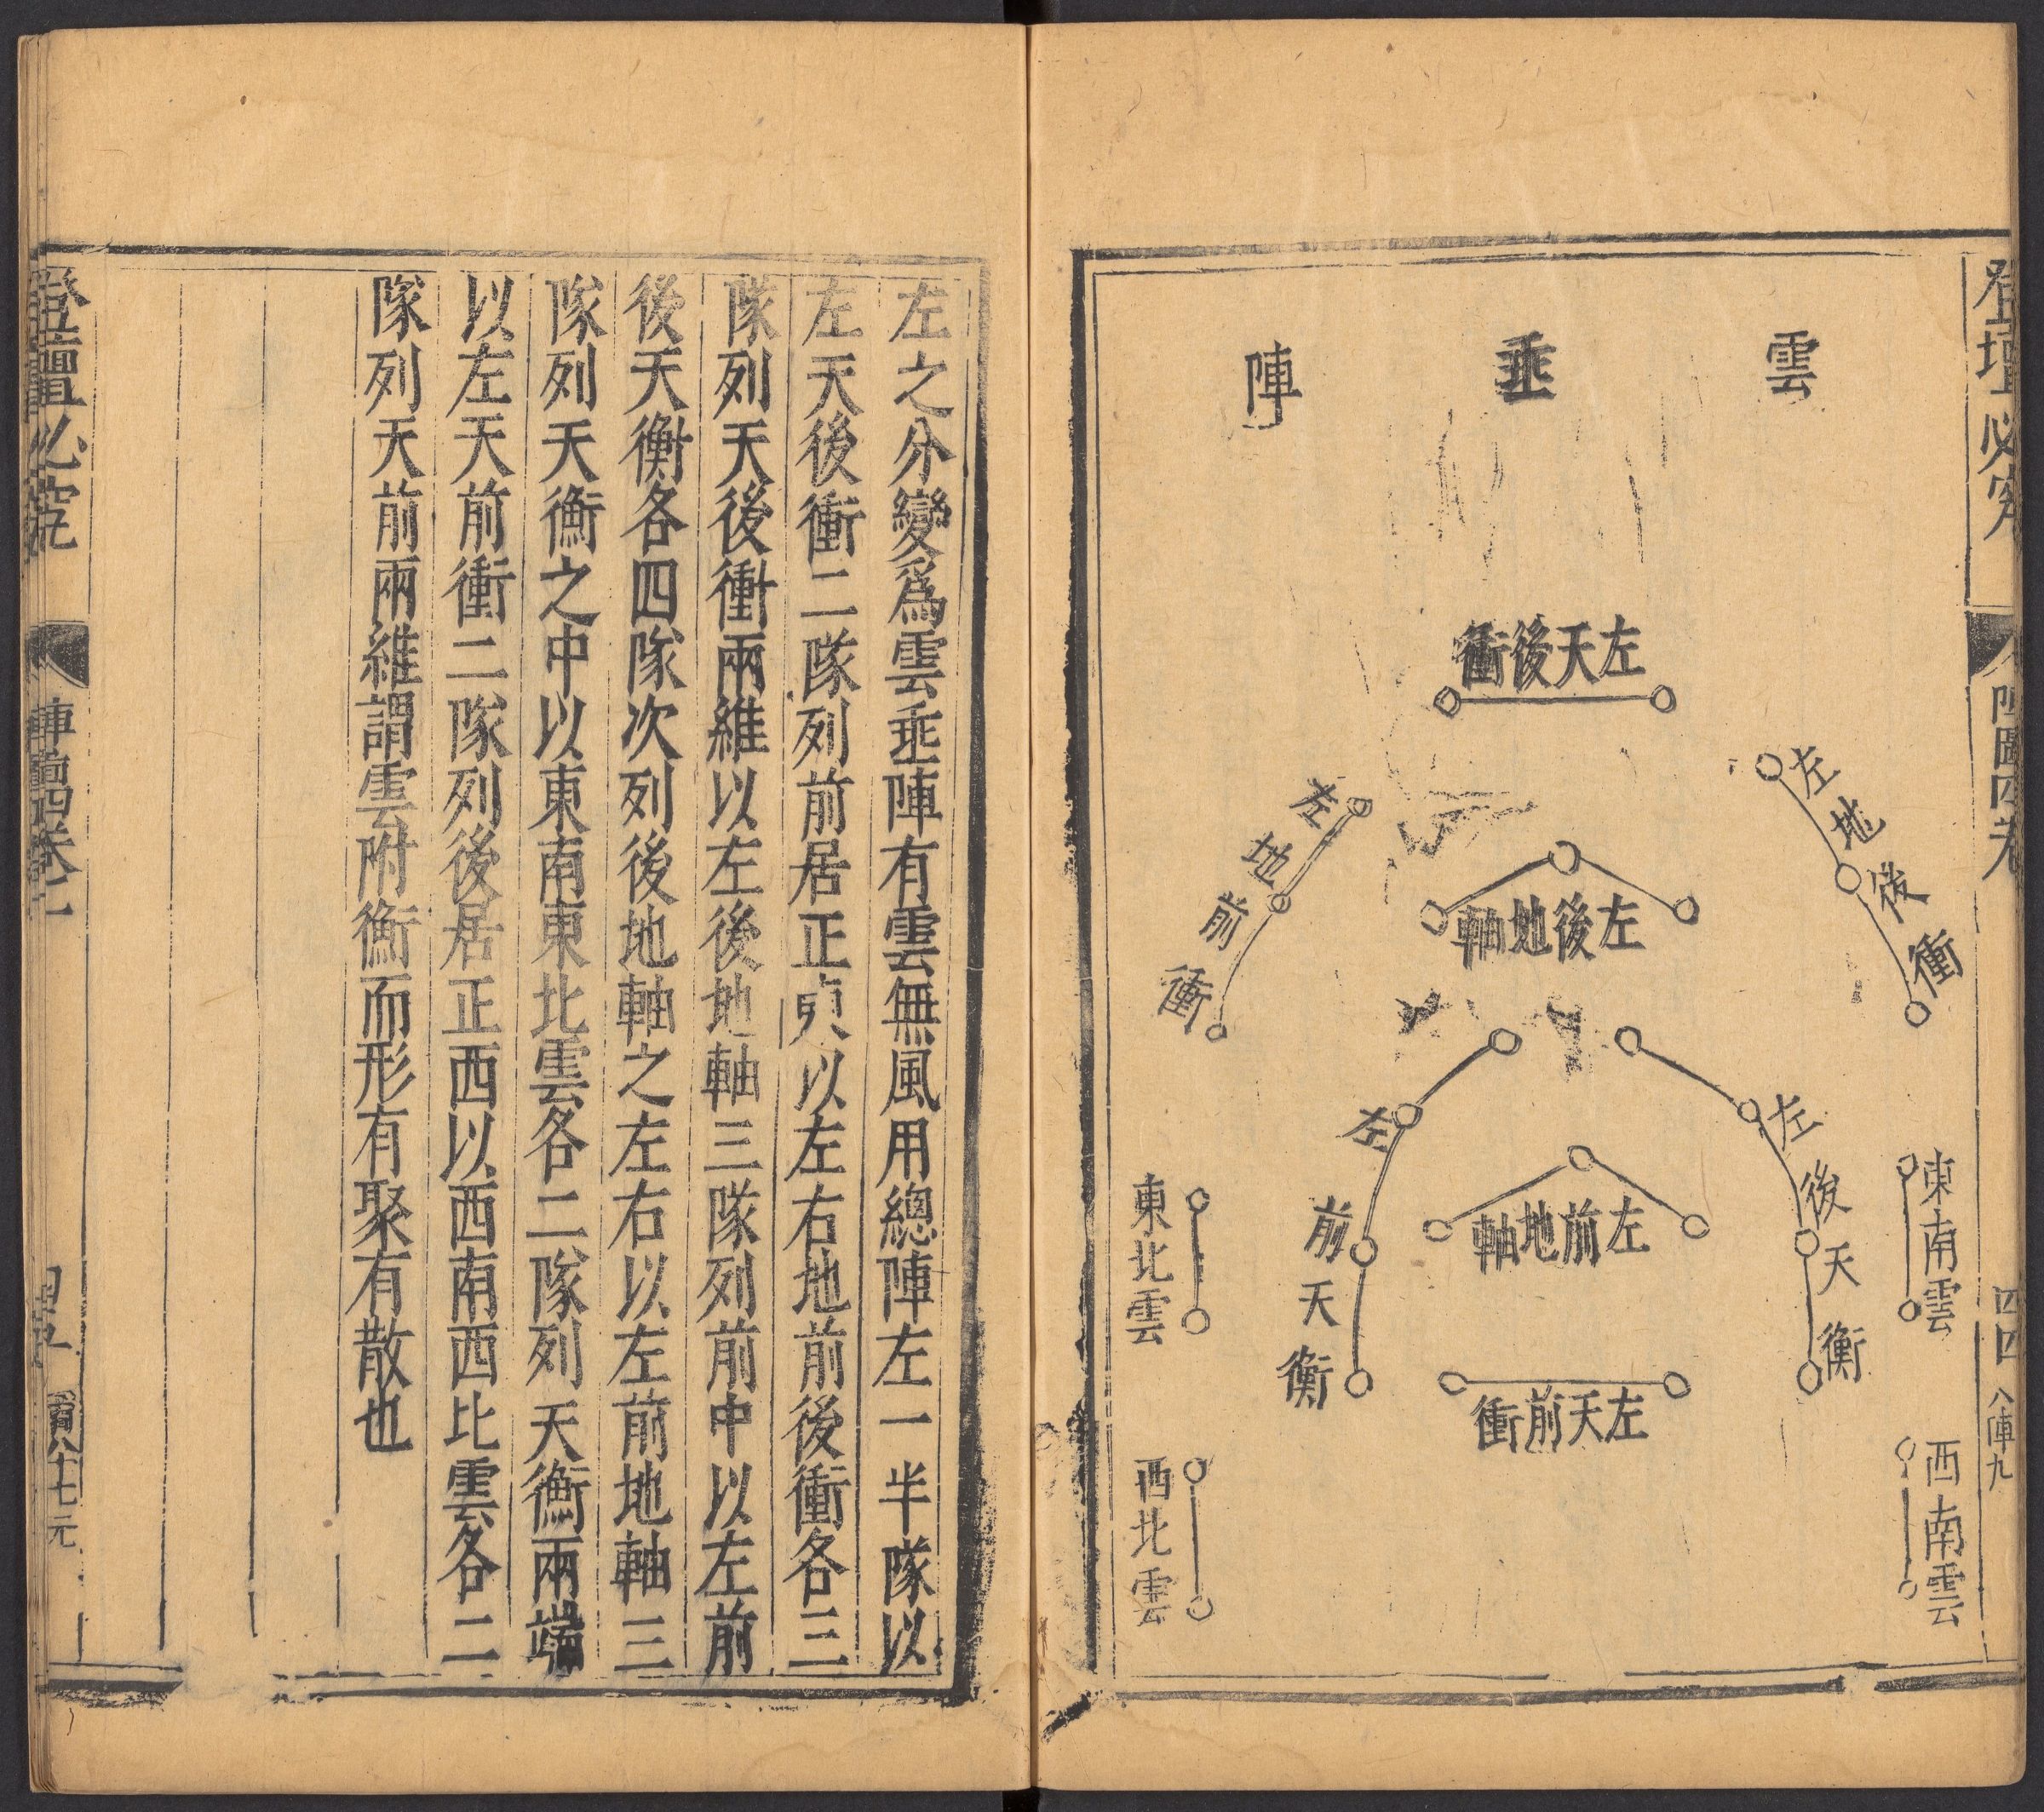 登壇必究
陣圖四卷
四四
八庫九
雲垂陣
左天後衝
左地後衝
左地前衝
左後地軸
左後天衡
左前天衡
左前地軸
左天前衝
東南雲
東北雲
西南雲
西北雲
左之分變爲雲垂陣有雲無風用總陣左一半隊以
左天後衝二隊列前居正以左右地前後衝各三
隊列天後衝兩維以左後地軸三隊列前中以左前
後天衡各四隊次列後地軸之左右以左前地軸三
隊列天衡之中以東南東北雲各二隊列天衡兩端
以左天前衝二隊列後居正西以西南西比雲各二
隊列天前兩維謂雲附衡而形有聚有散也
登壇必究
陣圖四卷